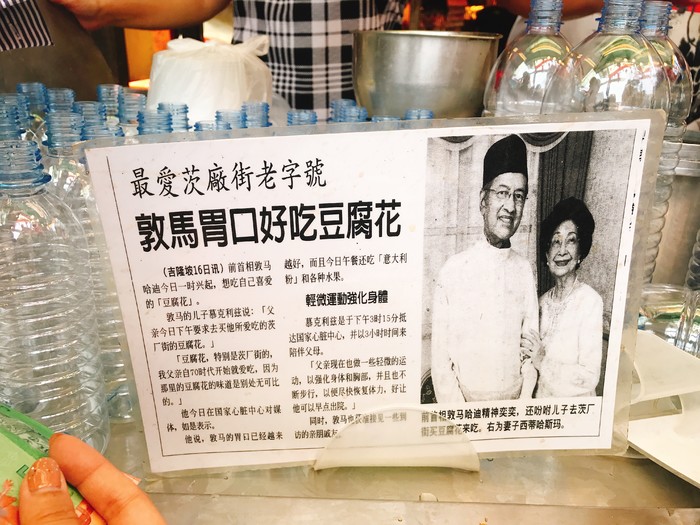 最愛茨廠街老字號
敦馬胃口好吃豆腐花
（吉隆坡16日讯）前首相敦马
哈迪今日一时兴起，想吃自己喜爱
的「豆腐花」。
敦马的儿子慕克利兹说：「父
亲今日下午要求去买他所爱吃的茨
厂街的豆腐花。」
「豆腐花，特别是茨厂街的，
我父亲自70年代开始就爱吃，因为
那里的豆腐花的味道是别处无可比
的。」
他今日在国家心脏中心对媒
体，如是表示。
他说，敦马的胃口已经越来
越好，而且今日午餐还吃「意大利
粉」和各种水果。
輕微運動強化身體
慕克利兹是于下午3时15分抵
达国家心脏中心，并以3小时时间来
陪伴父母。
「父亲现在也做一些轻微的运
动，以强化身体和胸部，并且也不
断步行，以便尽快恢复体力，好让
他可以早点出院。」
同时，敦马也获准接见一些到
访的亲朋戚
前首相敦马哈迪精神奕奕，还吩咐儿子去茨厂
街买豆腐花来吃。右为妻子西蒂哈斯玛。